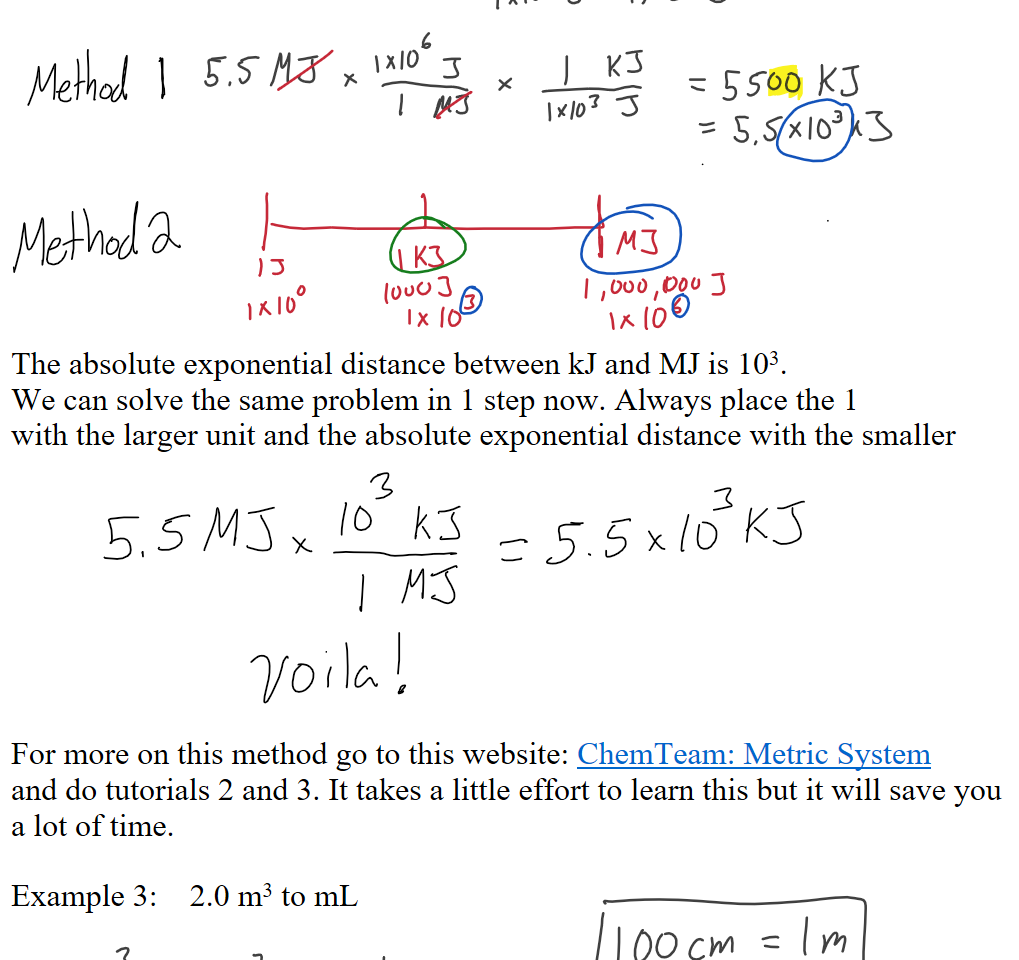 Method 1 5.5 MJ × 1×10⁶ J / 1 MJ × 1 KJ / 1×10³ J = 5500 KJ
= 5.5×10³ kJ
Method 2
1 J 1 KJ 1 MJ
1×10⁰ 1000 J 1,000,000 J
1×10³ 1×10⁶
The absolute exponential distance between kJ and MJ is 10³.
We can solve the same problem in 1 step now. Always place the 1
with the larger unit and the absolute exponential distance with the smaller
5.5 MJ × 10³ KJ / 1 MJ = 5.5×10³ KJ
Voila!
For more on this method go to this website: ChemTeam: Metric System
and do tutorials 2 and 3. It takes a little effort to learn this but it will save you
a lot of time.
Example 3: 2.0 m³ to mL
100 cm = 1 m